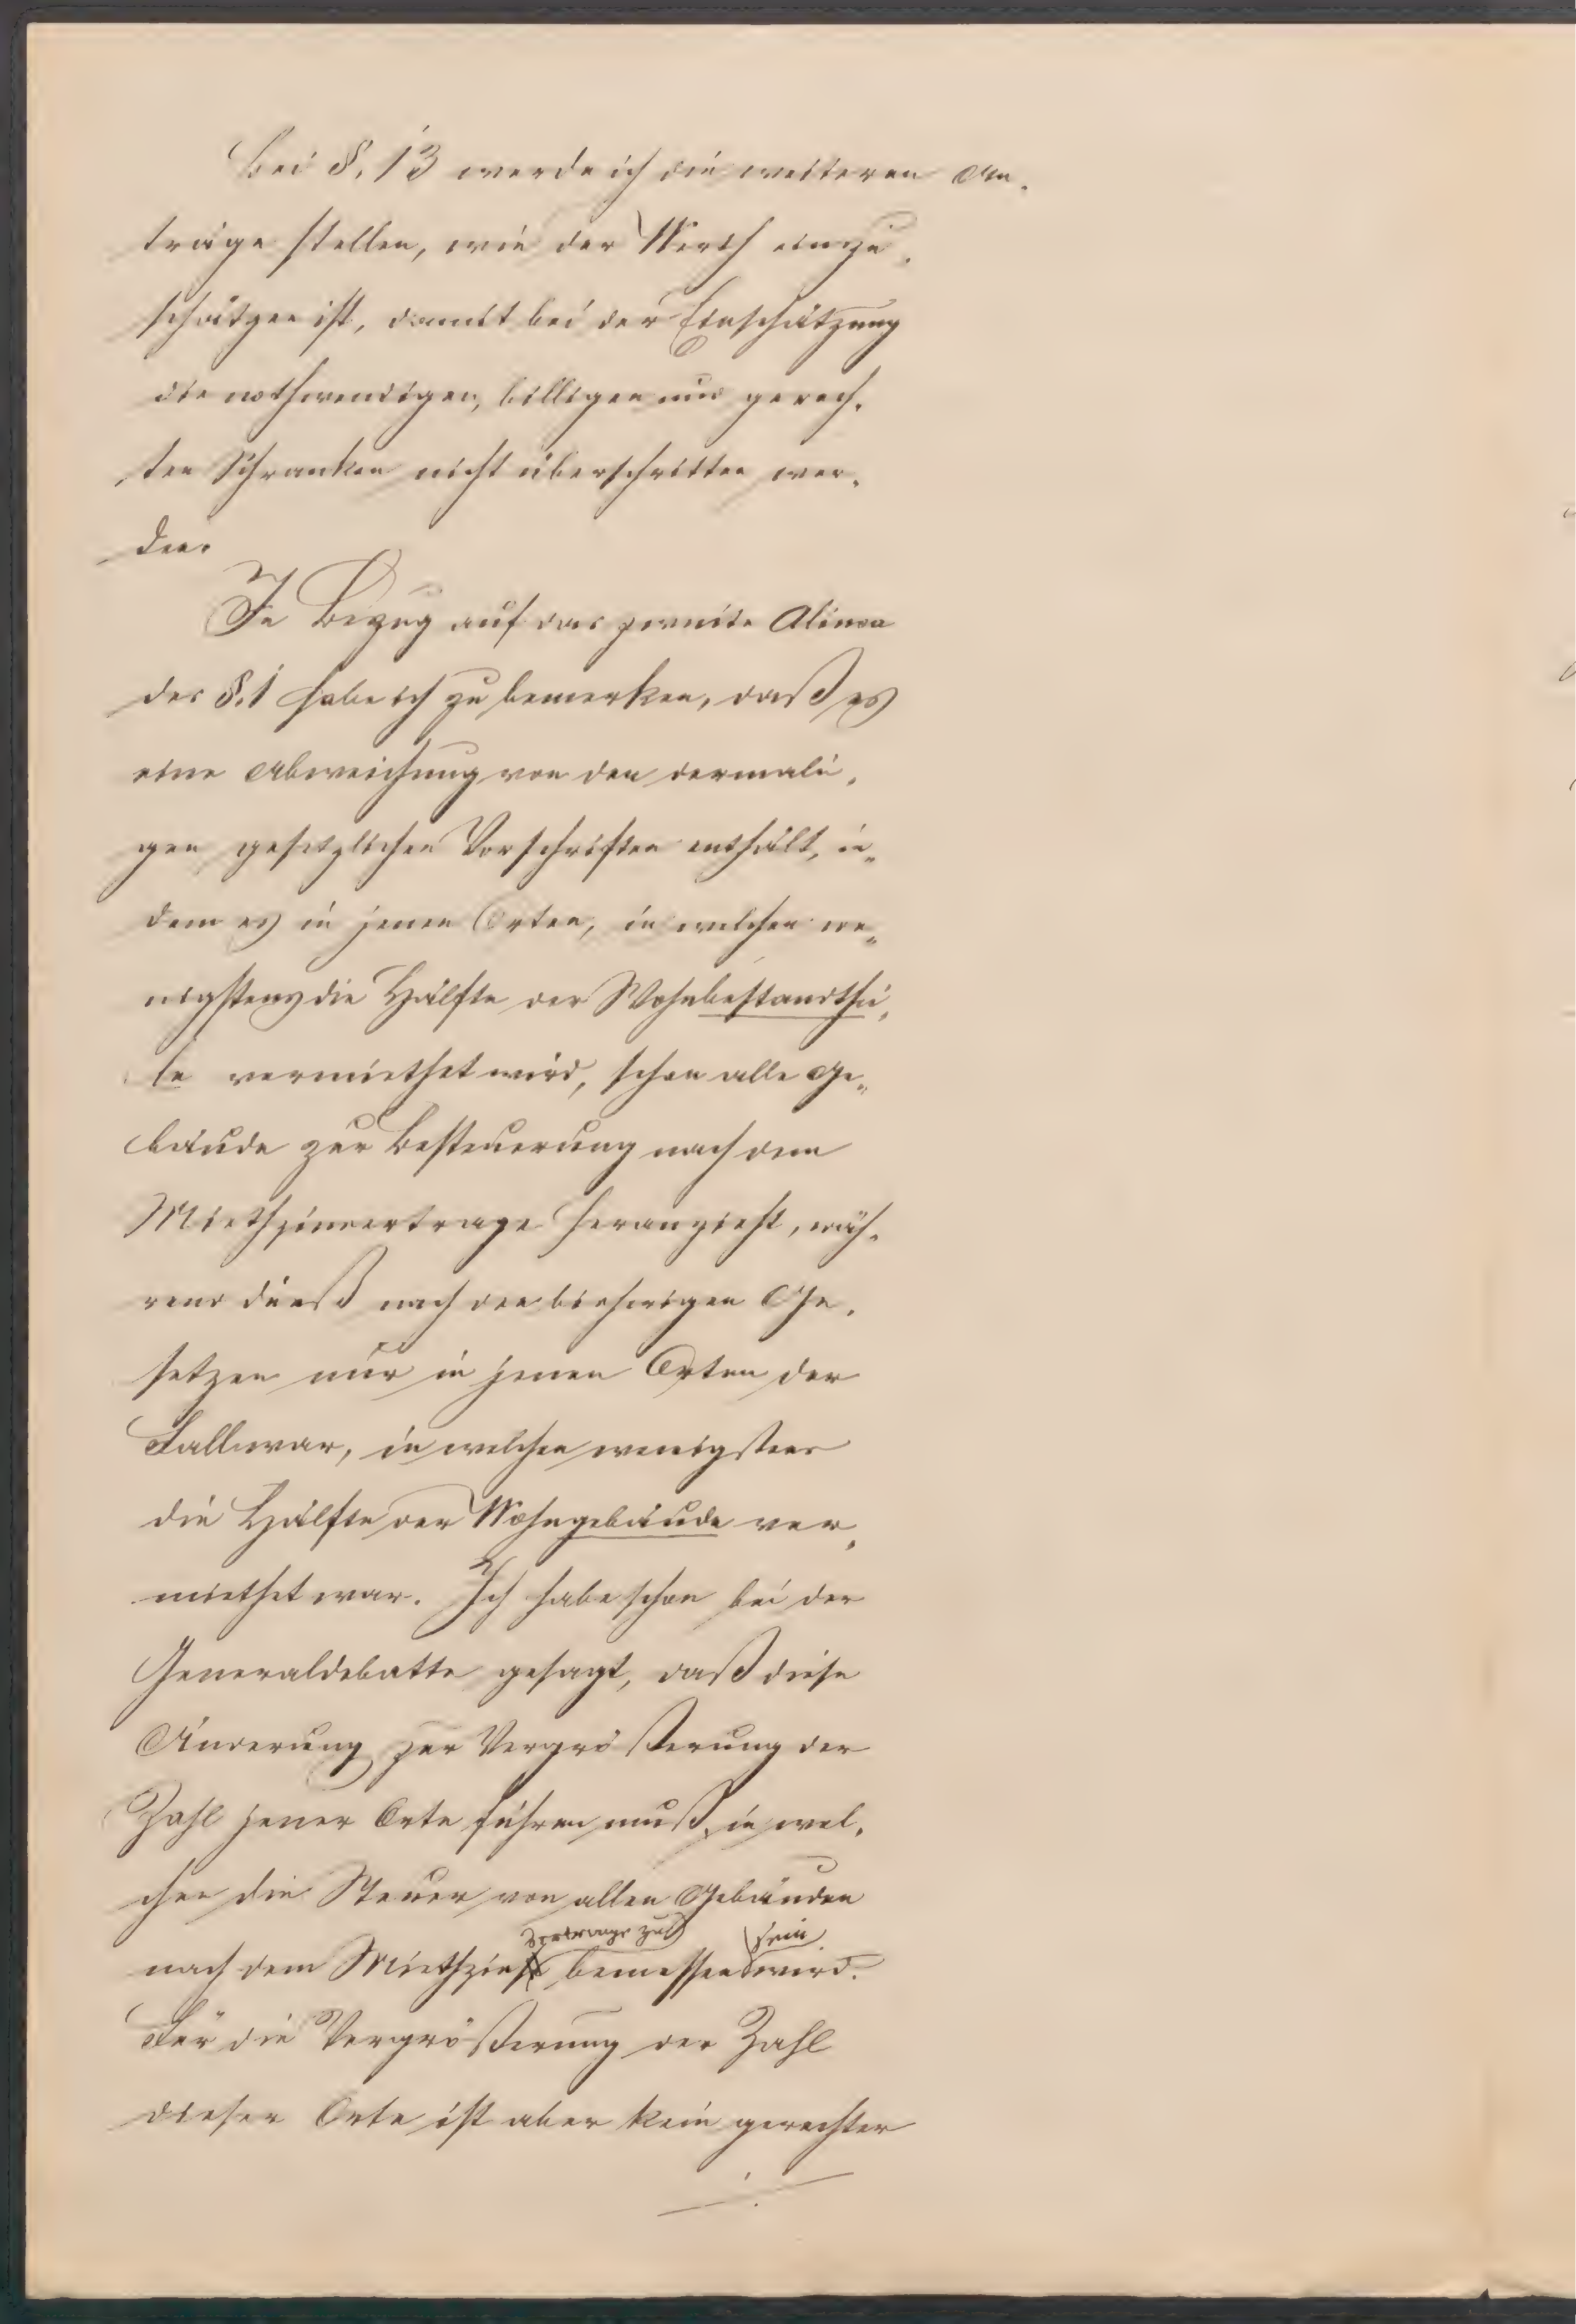 Bei §. 13 werde ich die weiteren An-
träge stellen, wie der Werth einzu-
schätzen ist, damit bei der Einschätzung
die nothwendigen, billigen und gerech-
ten Schranken nicht überschritten wer-
den.
In Bezug auf das zweite Alinea
des §. 1 habe ich zu bemerken, daß es
eine Abweichung von den dermali-
gen gesetzlichen Vorschriften enthält, in-
dem es in jenen Orten, in welchen we-
nigstens die Hälfte der Wohnbestandthei-
le vermiethet wird, schon alle Ge-
bäude zur Besteuerung nach dem
Miethzinsertrage heranzieht, wäh-
rend dieß nach den bisherigen Ge-
setzen nur in jenen Orten der
Fall war, in welchen wenigstens
die Hälfte der Wohngebäude ver-
miethet war. Ich habe schon bei der
Generaldebatte gesagt, daß diese
Änderung zur Vergrößerung der
Zahl jener Orte führen muß, in wel-
chen die Steuer von allen Gebäuden
ertrage zu sein
nach dem Miethzins bemessen wird.
Für die Vergrößerung der Zahl
dieser Orte ist aber kein gerechter